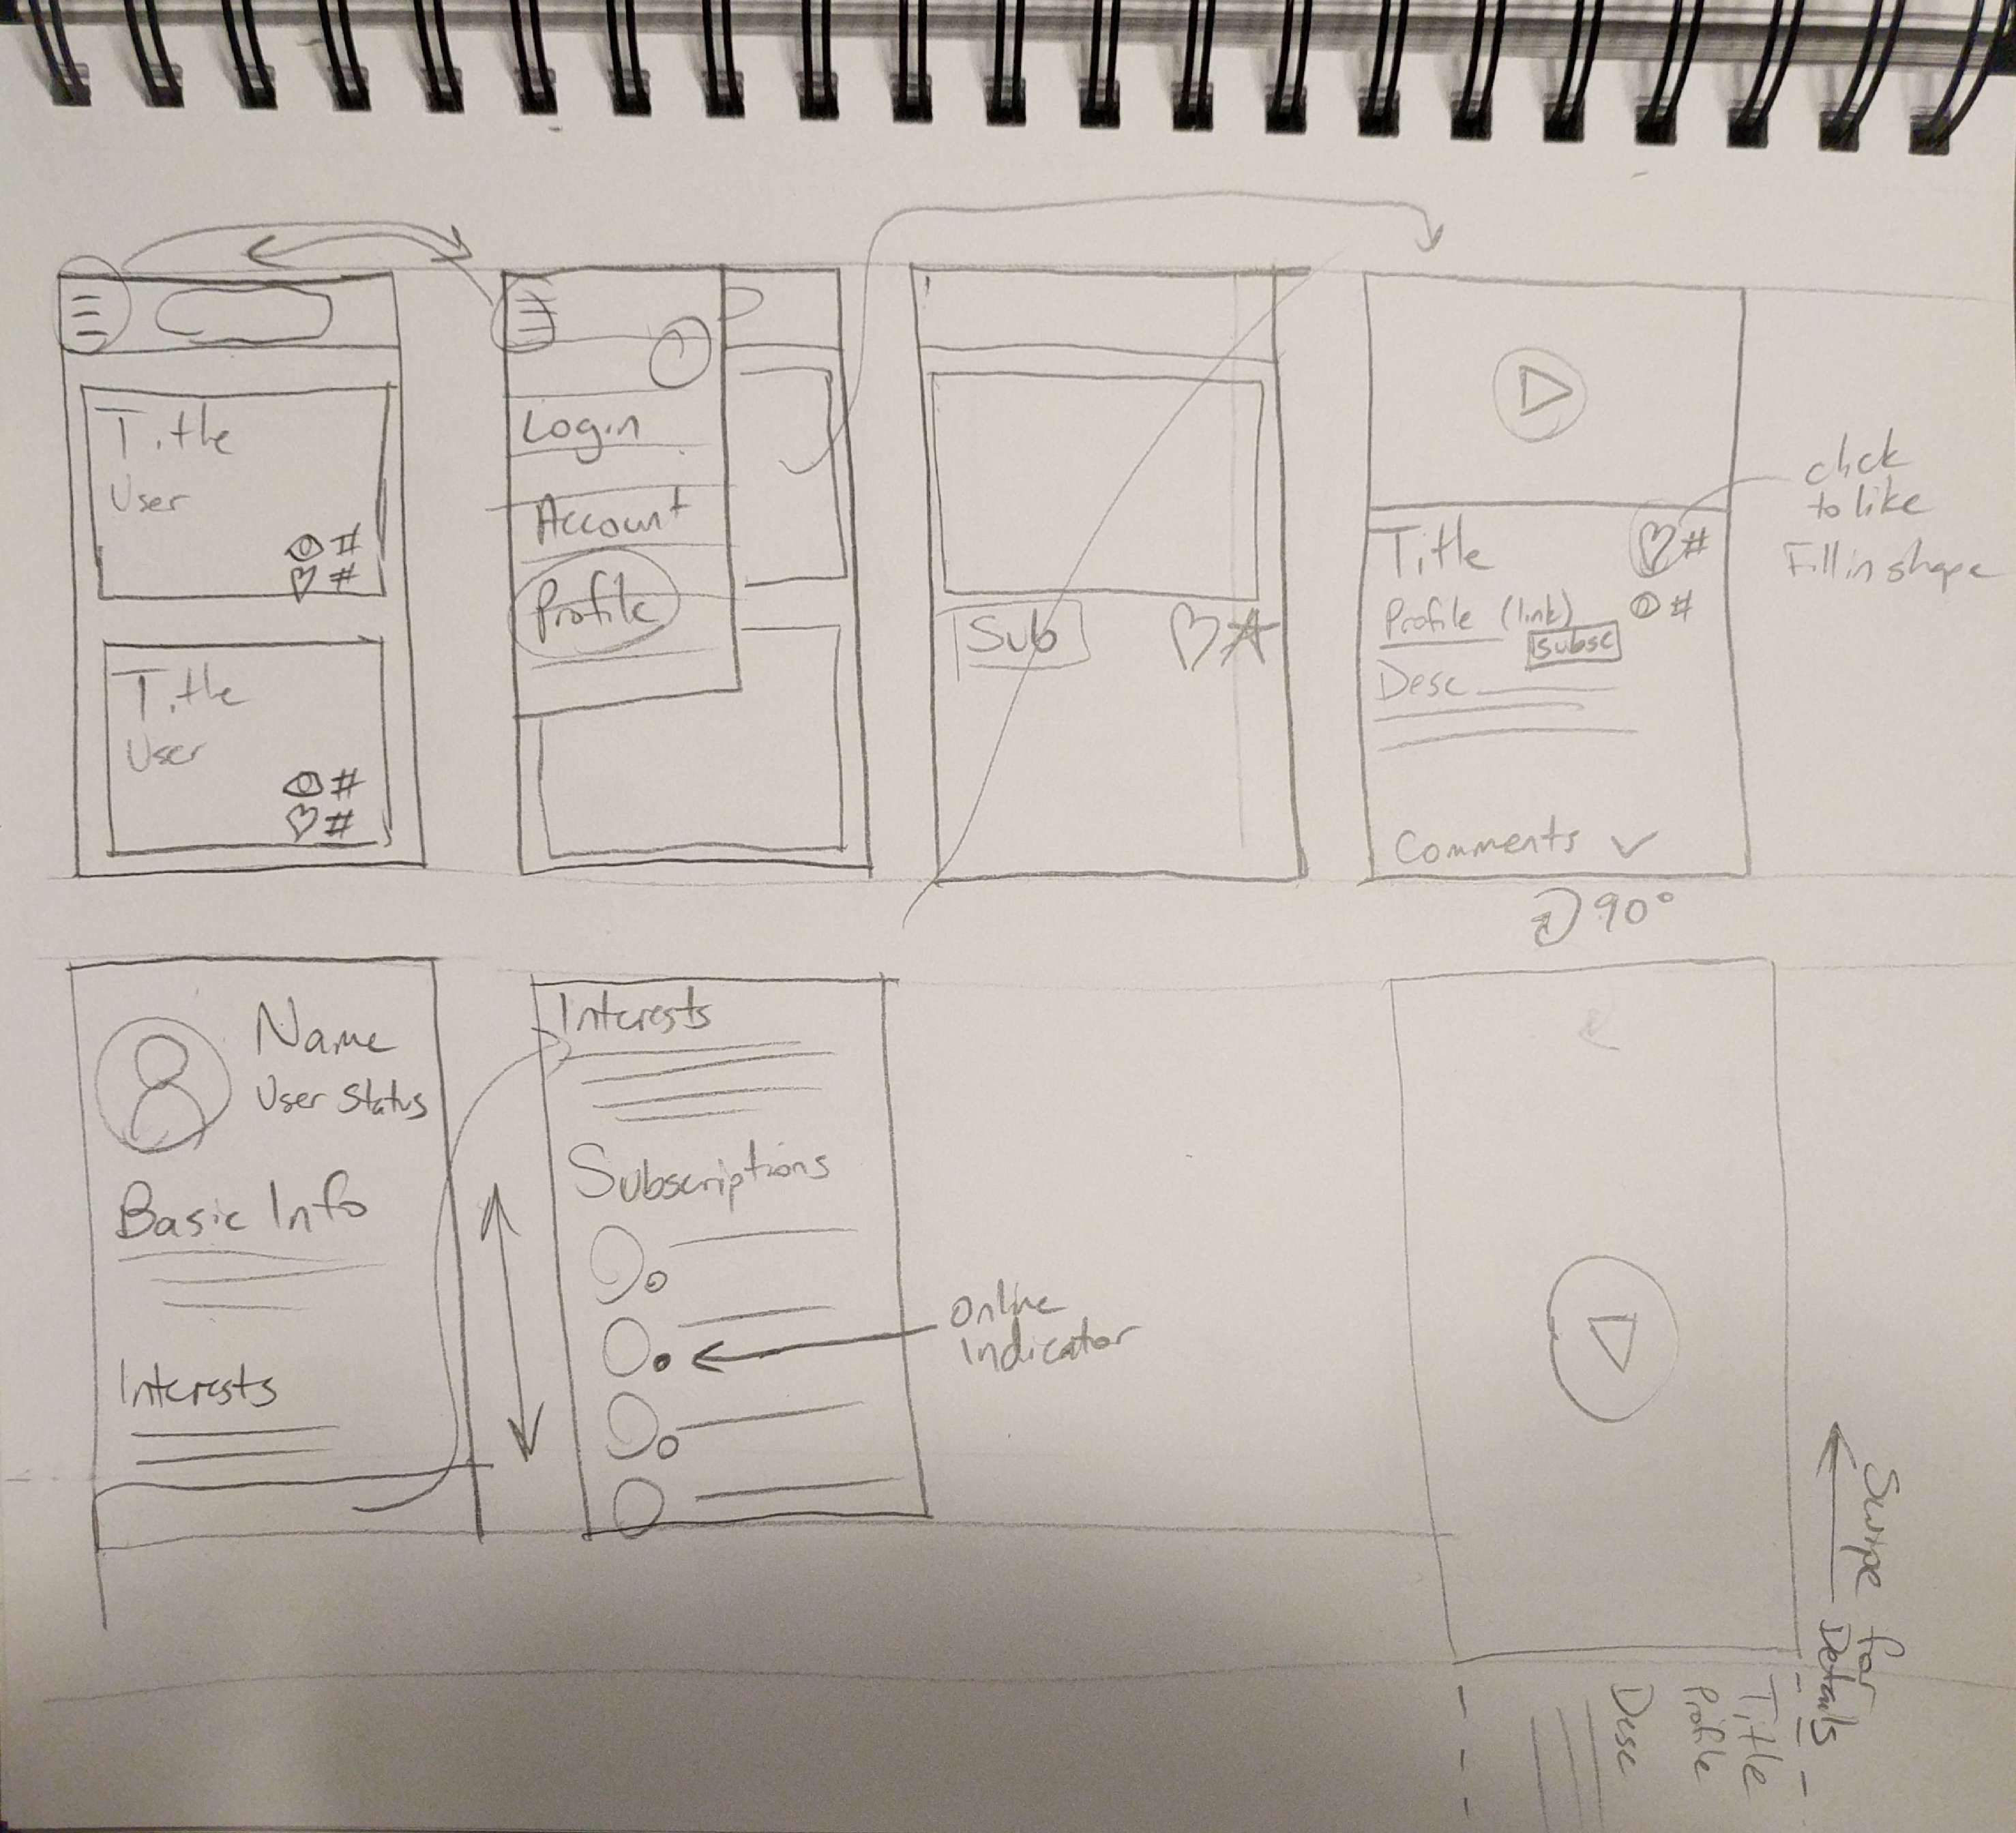 Title
User
#
#
Title
User
#
#
Login
Account
Profile
Sub
Title
#
Profile (link)
#
Subsc
Desc
Comments
click
to like
Fill in shape
90°
Name
User Status
Basic Info
Interests
Interests
Subscriptions
Online
Indicator
Swipe for
Details
Title
Profile
Desc